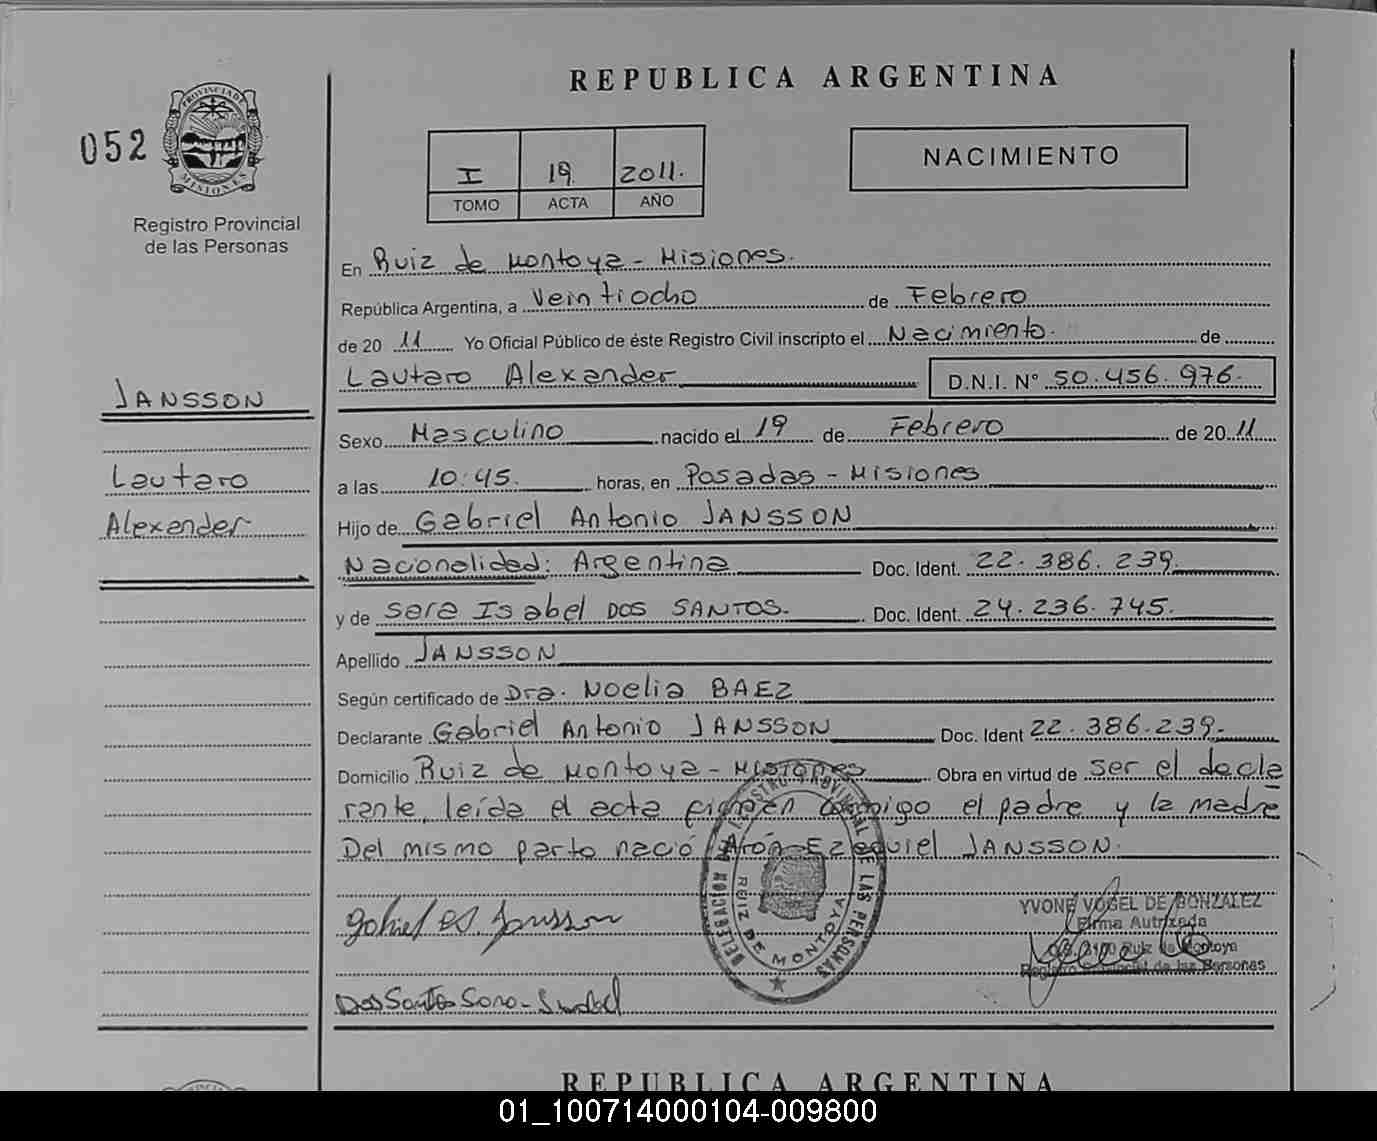 REPUBLICA ARGENTINA
052
PROVINCIA DE
MISIONES
Registro Provincial
de las Personas
I 19 2011.
TOMO ACTA AÑO
NACIMIENTO
En Ruiz de Montoya - Misiones.
República Argentina, a Veintiocho de Febrero
de 20 11 Yo Oficial Público de éste Registro Civil inscripto el Nacimiento. de
Lautaro Alexander D.N.I. Nº 50.456.976.
JANSSON
Lautaro
Alexander
Sexo Masculino nacido el 19 de Febrero de 20 11
a las 10:45. horas, en Posadas - Misiones
Hijo de Gabriel Antonio JANSSON
Nacionalidad: Argentina Doc. Ident. 22.386.239.
y de Sara Isabel DOS SANTOS. Doc. Ident. 24.236.745.
Apellido JANSSON
Según certificado de Dra. Noelia BAEZ
Declarante Gabriel Antonio JANSSON Doc. Ident 22.386.239.
Domicilio Ruiz de Montoya - Misiones Obra en virtud de ser el decla
rante, leída el acta firman conmigo el padre y la madre
Del mismo parto nació Arón Ezequiel JANSSON.
DELEGACION DEL REGISTRO PROVINCIAL DE LAS PERSONAS
RUIZ DE MONTOYA
YVONE VOGEL DE GONZALEZ
Firma Autrizada
Ruiz de Montoya
Registro Provincial de las Personas
Dos Santos Sara - Isabel
REPUBLICA ARGENTINA
01_100714000104-009800